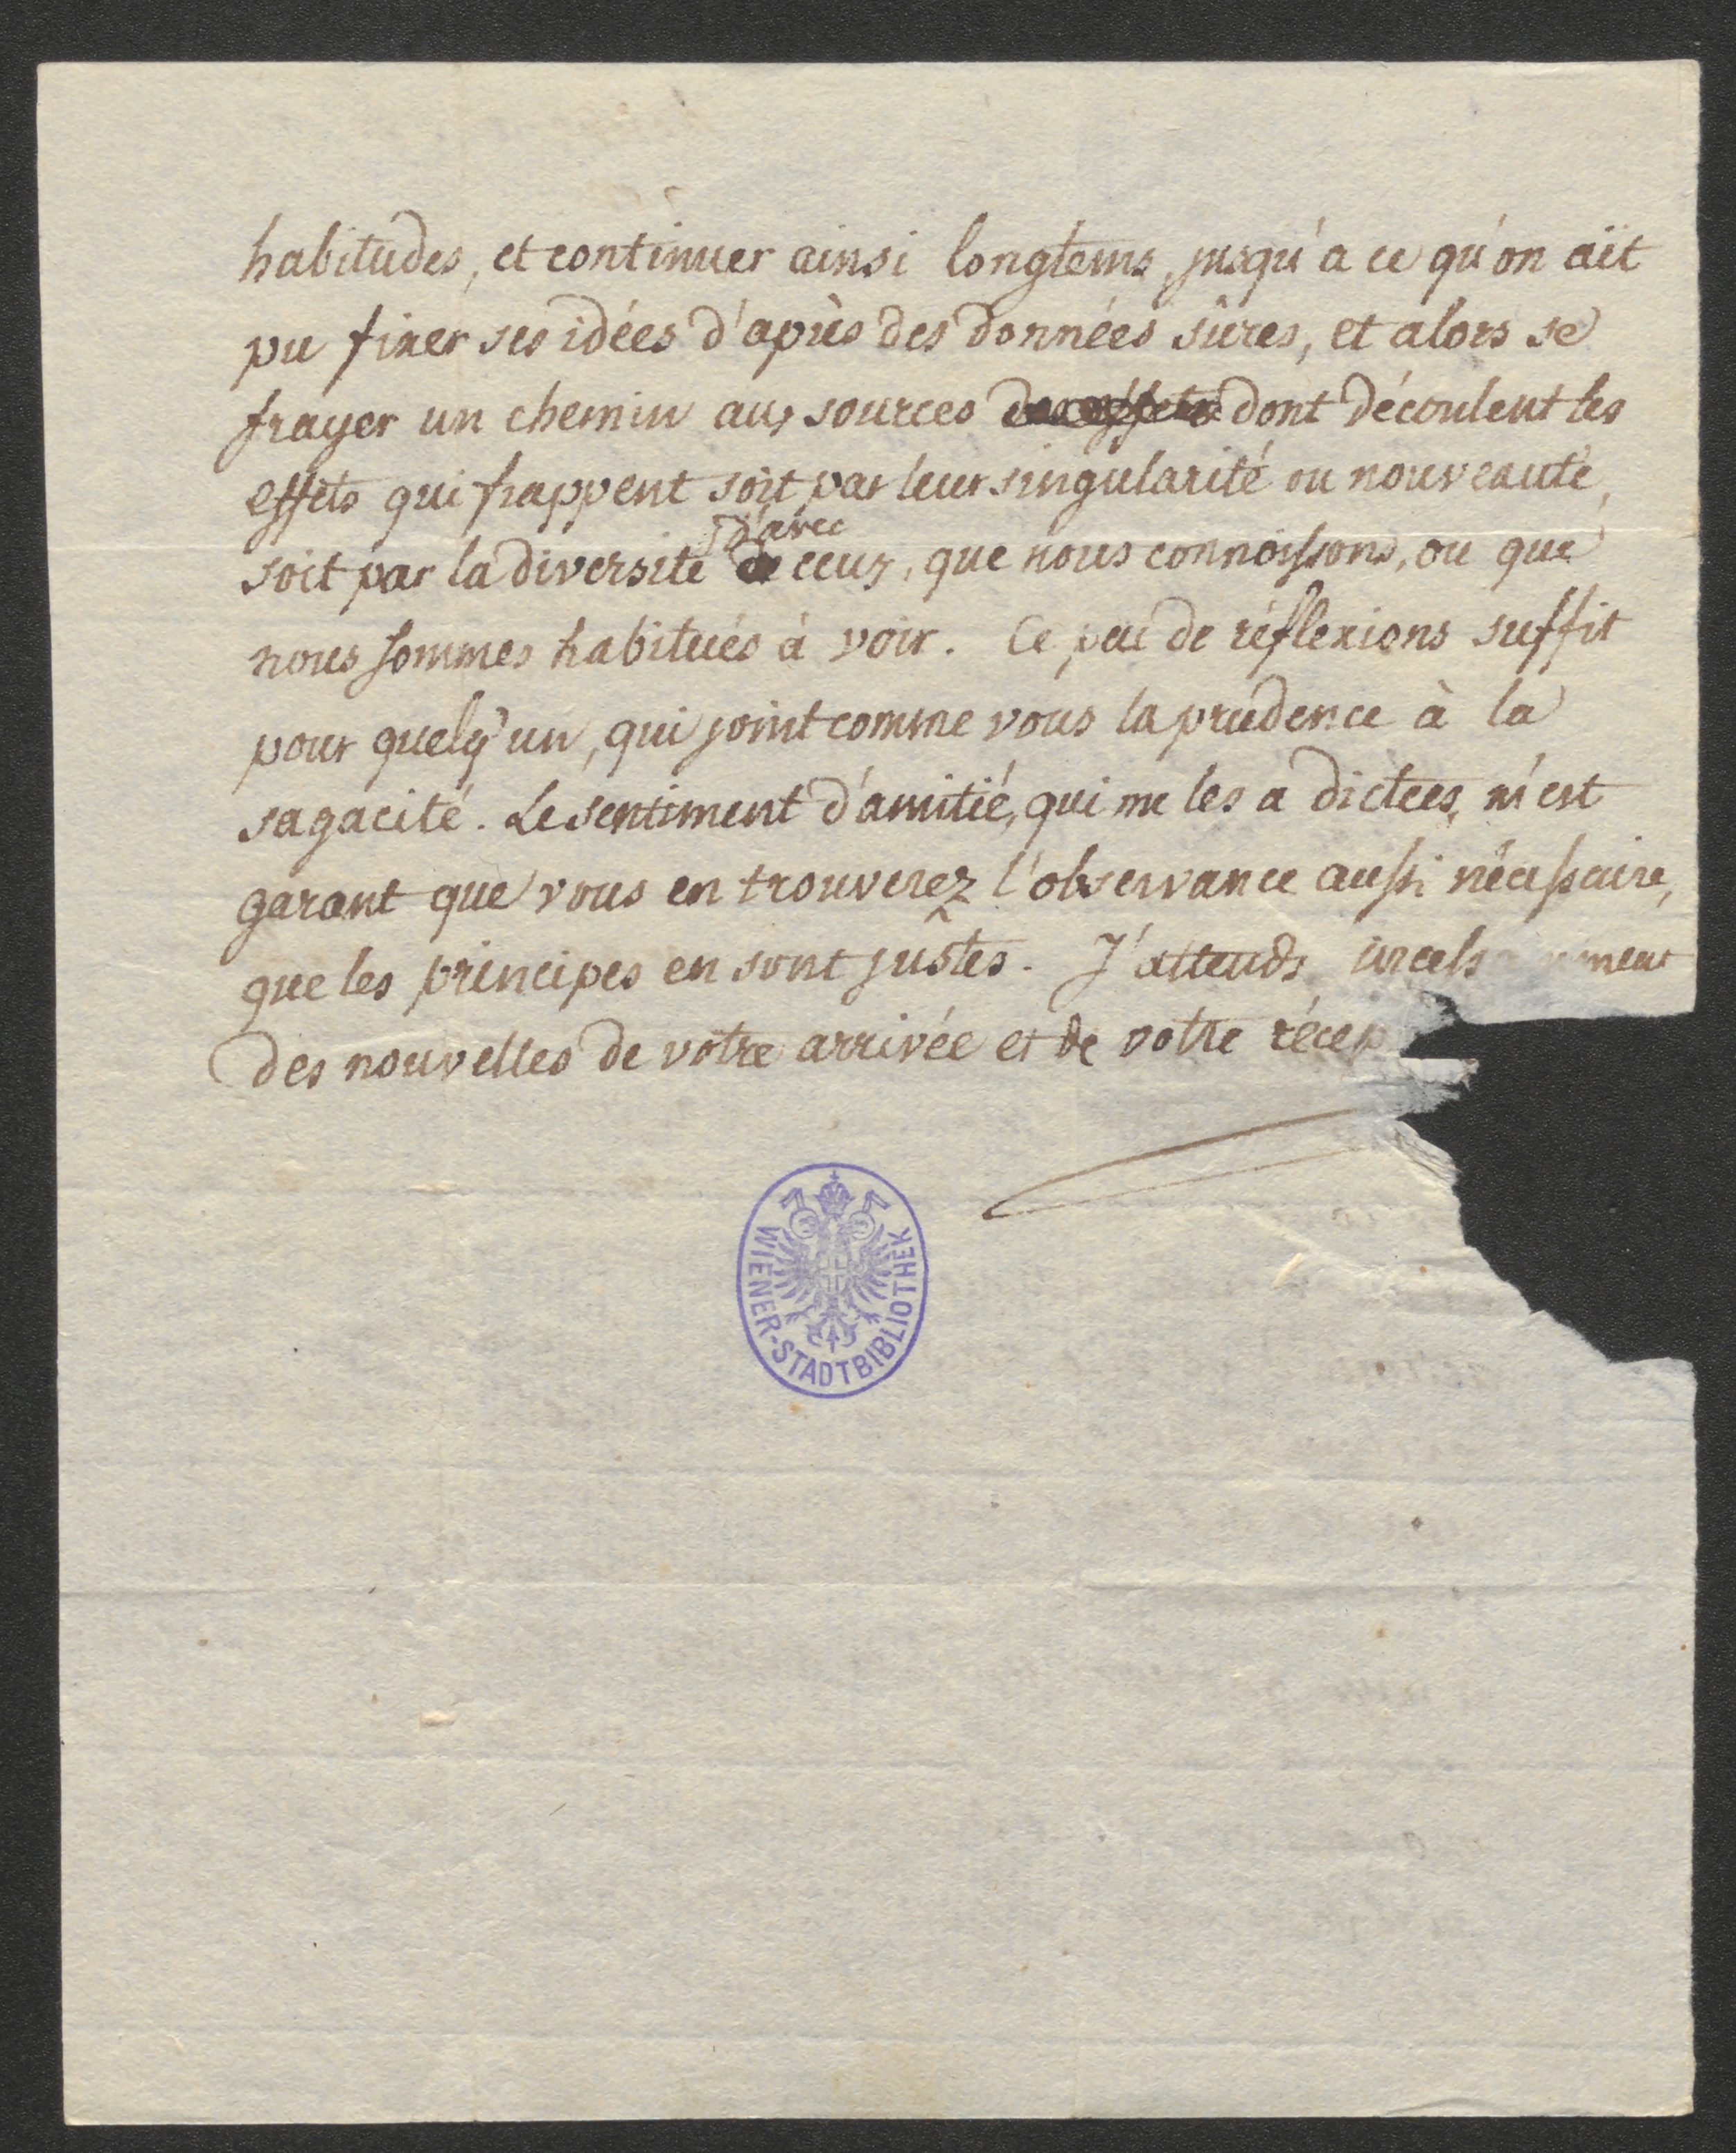 habitudes, et continuer ainsi longtems, jusqu'a ce qu'on aït
pu fixer ses idées d'après des données sûres, et alors se
frayer un chemin aux sources des effets dont découlent les
effets qui frappent soit par leur singularité ou nouveauté,
d'avec
soit par la diversité de ceux, que nous connoissons, ou que
nous sommes habitués à voir. Ce peu de réflexions suffit
pour quelq'un, qui joint comme vous la prudence à la
sagacité. Le sentiment d'amitié, qui me les a dictées, m'est
garant que vous en trouverez l'observance aussi nécessaire,
que les principes en sont justes. J'attends incess ment
des nouvelles de votre arrivée et de votre récep
WIENER-STADTBIBLIOTHEK